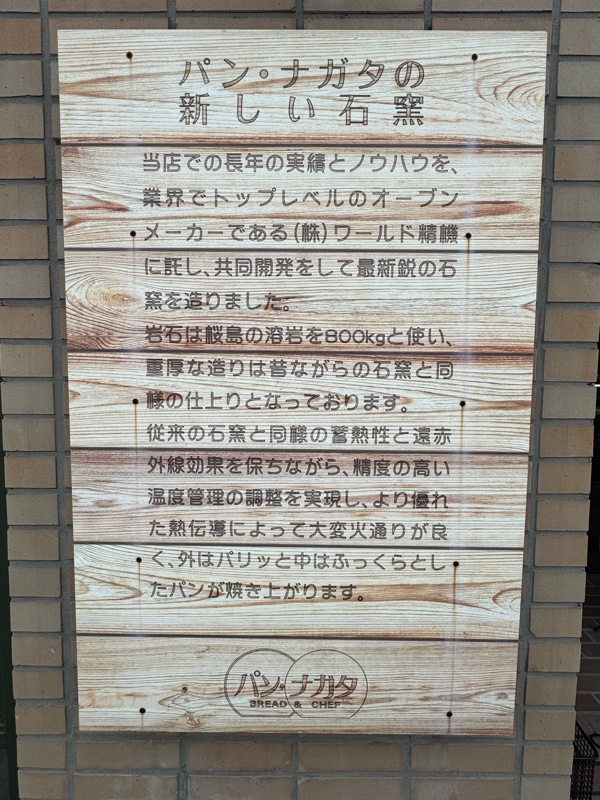 パン・ナガタの
新しい石窯
当店での長年の実績とノウハウを、
業界でトップレベルのオーブン
メーカーである(株)ワールド精機
に託し、共同開発をして最新鋭の石
窯を造りました。
岩石は桜島の溶岩を800kgと使い、
重厚な造りは昔ながらの石窯と同
様の仕上りとなっております。
従来の石窯と同様の蓄熱性と遠赤
外線効果を保ちながら、精度の高い
温度管理の調整を実現し、より優れ
た熱伝導によって大変火通りが良
く、外はパリッと中はふっくらとし
たパンが焼き上がります。
パン・ナガタ
BREAD & CHEF